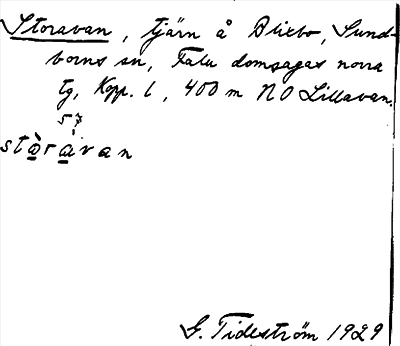 Storavan, tjärn å Blixbo, Sund-
borns sn, Falu domsagas norra
tg, Kopp. l, 400 m NO Lillavan.
57
stòrávan
G. Tideström 1929